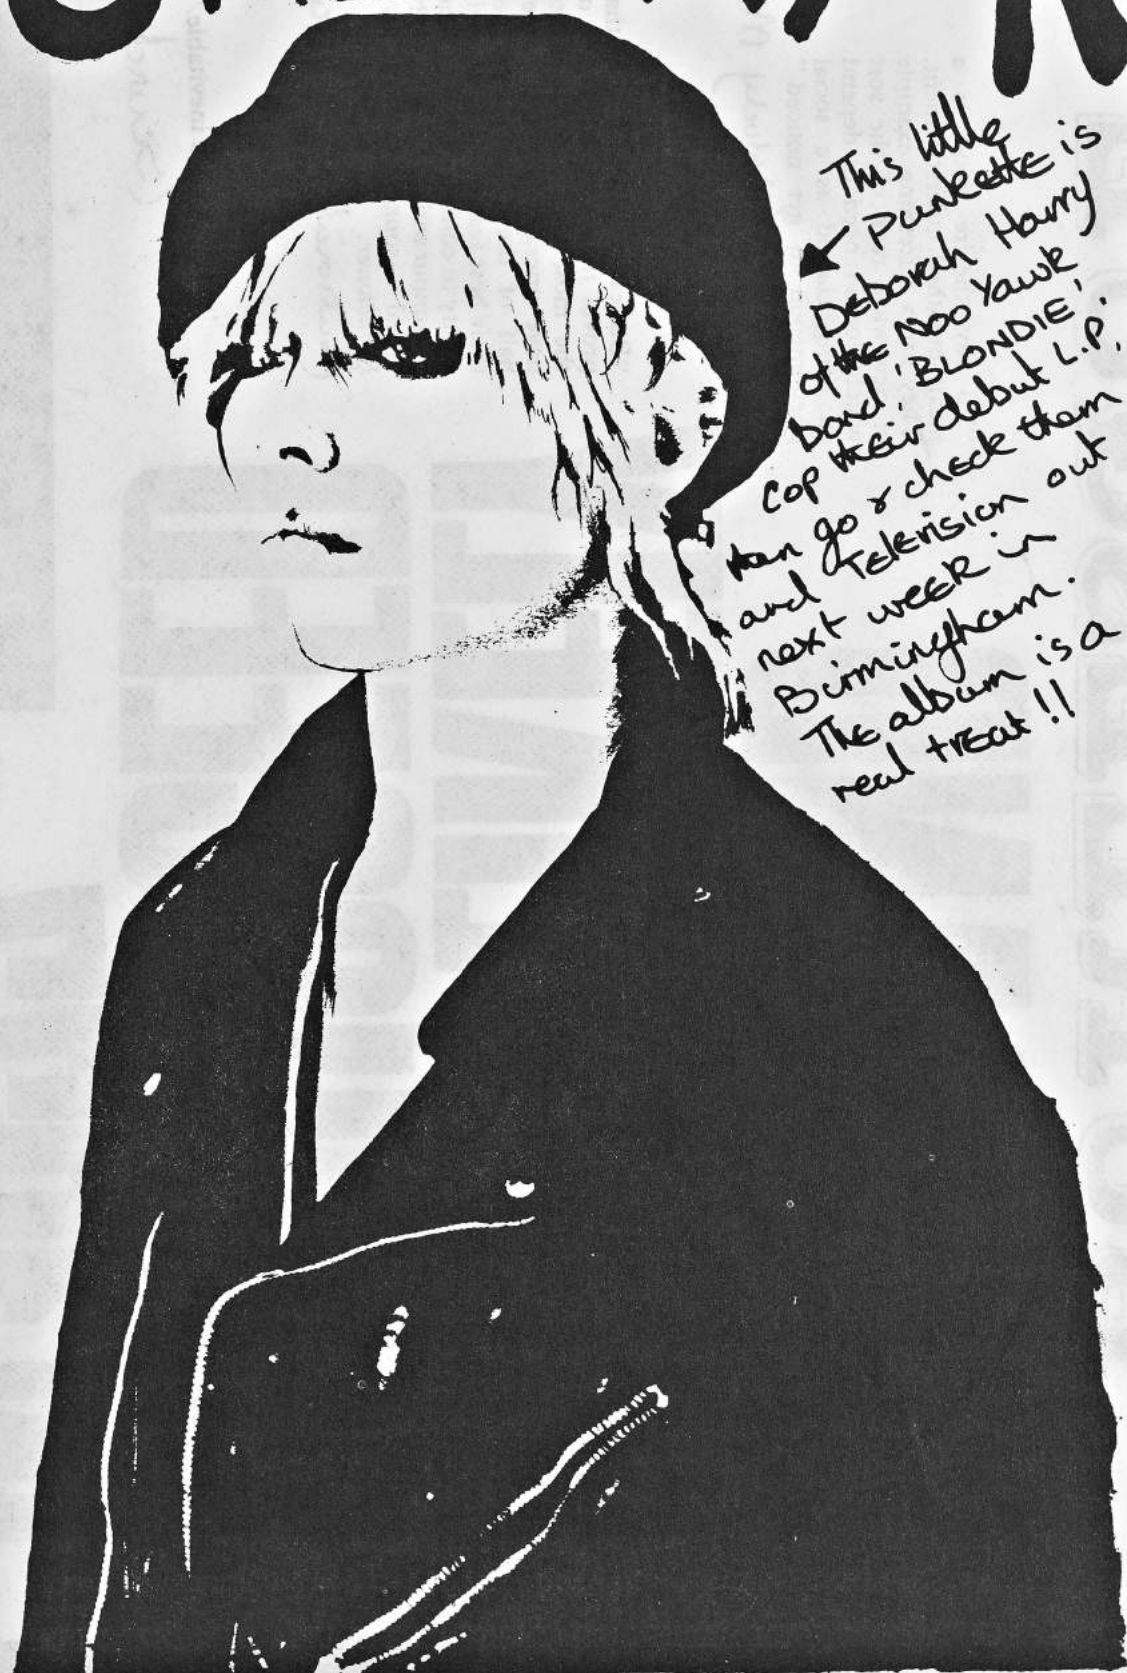 This little
Punkette is
Deborah Harry
of the Noo Yawk
band, 'BLONDIE',
cop their debut L.P.
then go & check them
and Television out
next week in
Birmingham.
The album is a
real treat!!